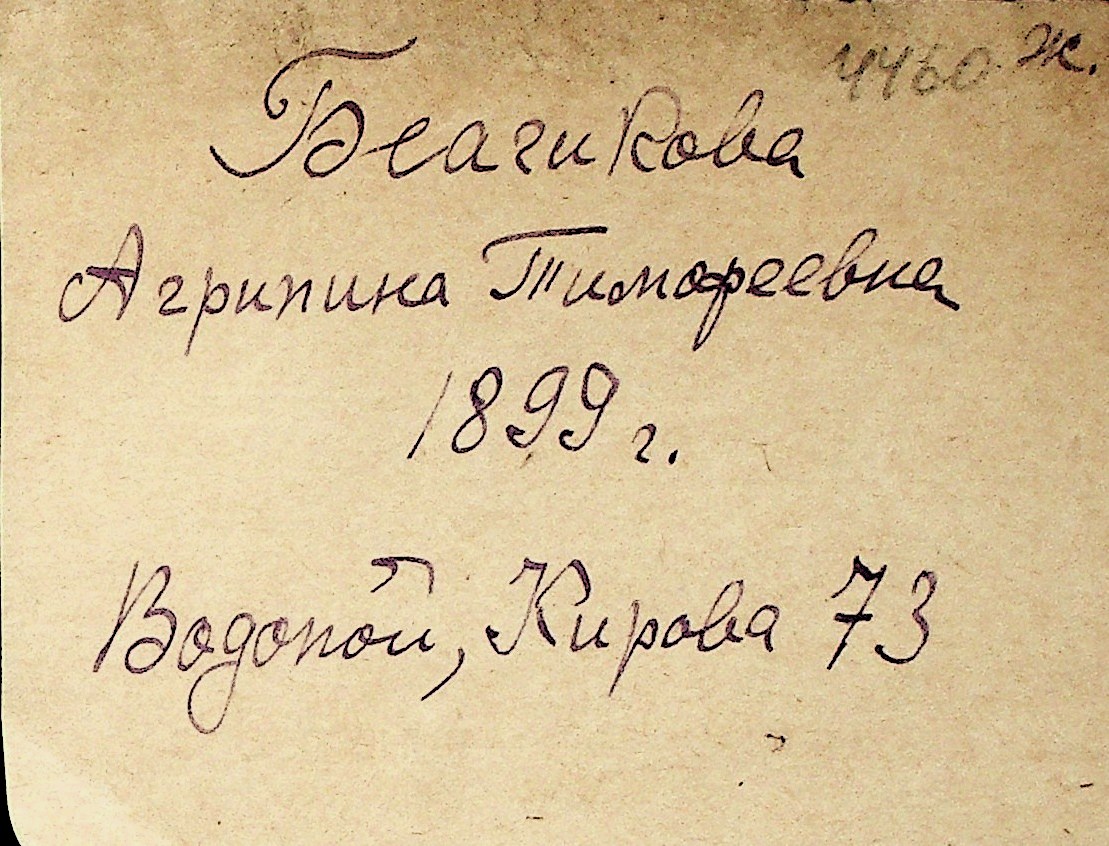 4460 Ж.
Беагикова
Агрипина Тимофеевна
1899 г.
Водопой, Кирова 73